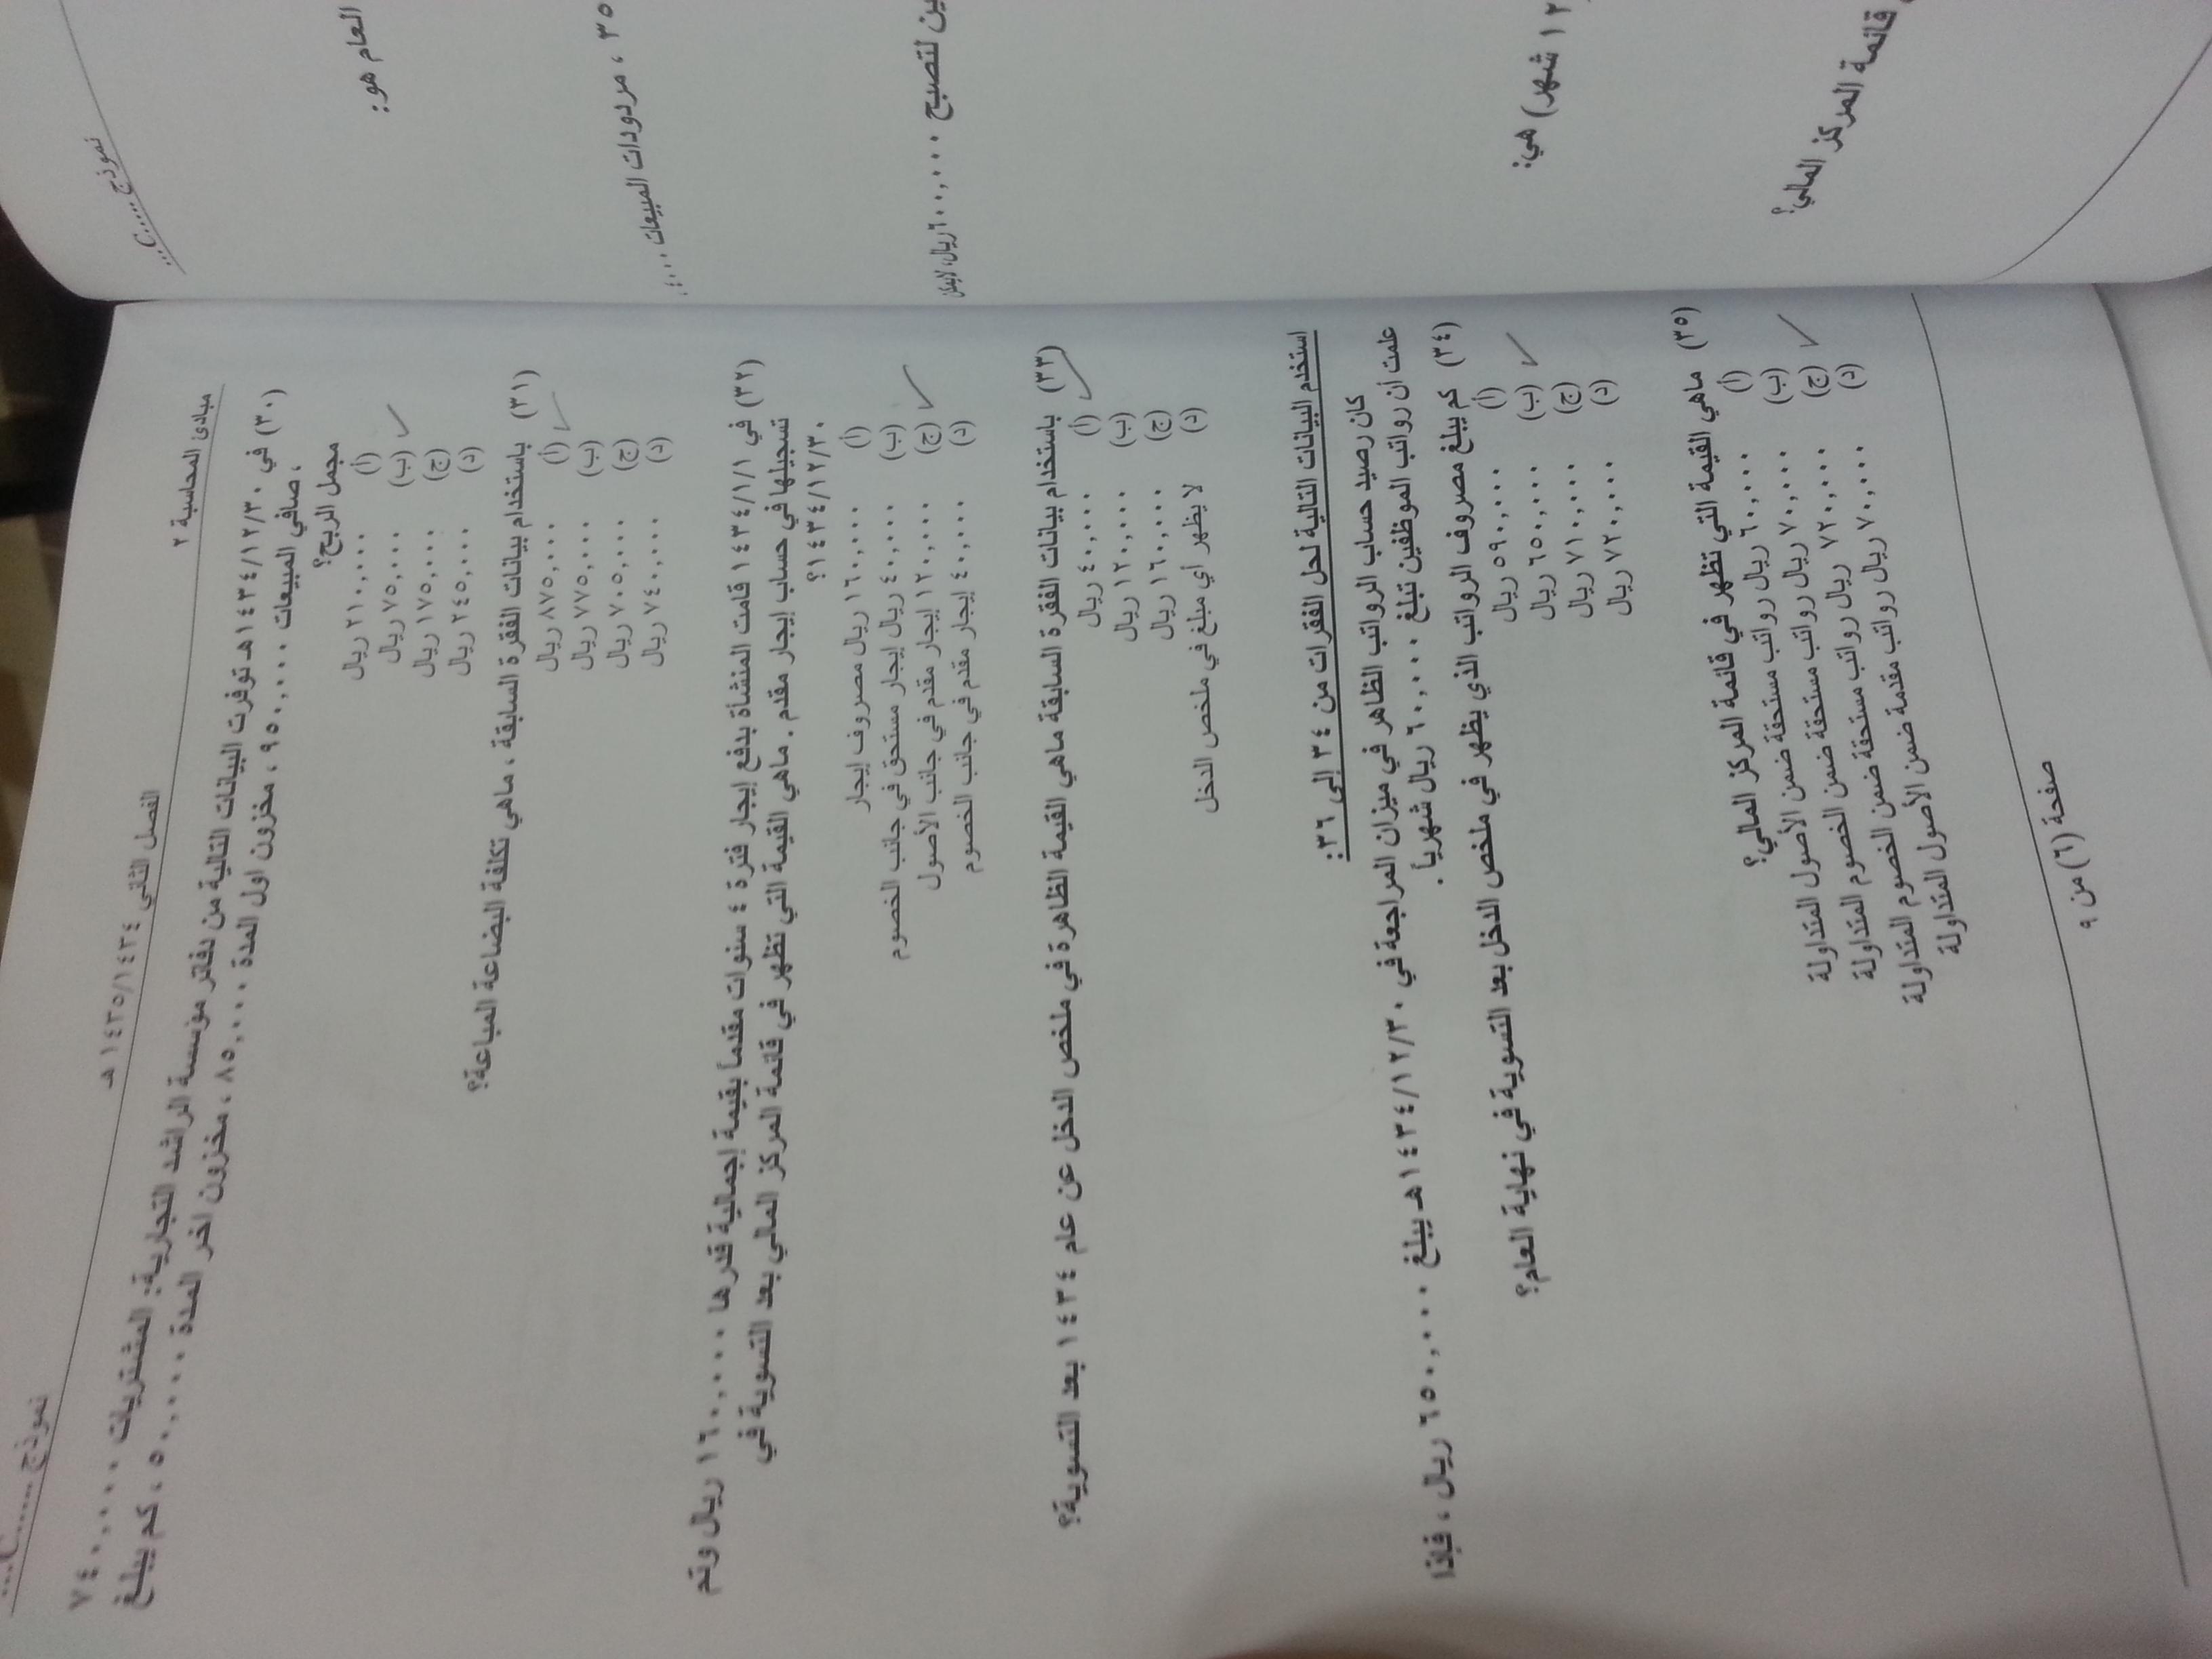 مبادئ المحاسبة ٢
الفصل الثاني ١٤٣٤/١٤٣٥ هـ
نموذج .....C...
(٣٠) في ١٤٣٤/١٢/٣٠هـ توفرت البيانات التالية من دفاتر مؤسسة الراشد التجارية: المشتريات ٧٤٠,٠٠٠
، صافي المبيعات ٩٥٠,٠٠٠ ، مخزون اول المدة ٨٥,٠٠٠ ، مخزون اخر المدة ٥٠,٠٠٠ ، كم يبلغ
مجمل الربح؟
(أ) ٢١٠,٠٠٠ ريال
(ب) ٧٥,٠٠٠ ريال
(ج) ١٧٥,٠٠٠ ريال
(د) ٢٤٥,٠٠٠ ريال
(٣١) باستخدام بيانات الفقرة السابقة ، ماهي تكلفة البضاعة المباعة؟
(أ) ٨٧٥,٠٠٠ ريال
(ب) ٧٧٥,٠٠٠ ريال
(ج) ٧٠٥,٠٠٠ ريال
(د) ٧٤٠,٠٠٠ ريال
(٣٢) في ١٤٣٤/١/١ قامت المنشأة بدفع إيجار فترة ٤ سنوات مقدماً بقيمة إجمالية قدرها ١٦٠,٠٠٠ ريال وتم
تسجيلها في حساب إيجار مقدم . ماهي القيمة التي تظهر في قائمة المركز المالي بعد التسوية في
١٤٣٤/١٢/٣٠؟
(أ) ١٦٠,٠٠٠ ريال مصروف إيجار
(ب) ٤٠,٠٠٠ ريال إيجار مستحق في جانب الخصوم
(ج) ١٢٠,٠٠٠ إيجار مقدم في جانب الأصول
(د) ٤٠,٠٠٠ إيجار مقدم في جانب الخصوم
(٣٣) باستخدام بيانات الفقرة السابقة ماهي القيمة الظاهرة في ملخص الدخل عن عام ١٤٣٤ بعد التسوية؟
(أ) ٤٠,٠٠٠ ريال
(ب) ١٢٠,٠٠٠ ريال
(ج) ١٦٠,٠٠٠ ريال
(د) لا يظهر أي مبلغ في ملخص الدخل
استخدم البيانات التالية لحل الفقرات من ٣٤ إلى ٣٦:
كان رصيد حساب الرواتب الظاهر في ميزان المراجعة في ١٤٣٤/١٢/٣٠هـ يبلغ ٦٥٠,٠٠٠ ريال ، فإذا
علمت أن رواتب الموظفين تبلغ ٦٠,٠٠٠ ريال شهرياً .
(٣٤) كم يبلغ مصروف الرواتب الذي يظهر في ملخص الدخل بعد التسوية في نهاية العام؟
(أ) ٥٩٠,٠٠٠ ريال
(ب) ٦٥٠,٠٠٠ ريال
(ج) ٧١٠,٠٠٠ ريال
(د) ٧٢٠,٠٠٠ ريال
(٣٥) ماهي القيمة التي تظهر في قائمة المركز المالي؟
(أ) ٦٠,٠٠٠ ريال رواتب مستحقة ضمن الأصول المتداولة
(ب) ٧٠,٠٠٠ ريال رواتب مستحقة ضمن الخصوم المتداولة
(ج) ٧٢٠,٠٠٠ ريال رواتب مستحقة ضمن الخصوم المتداولة
(د) ٧٠,٠٠٠ ريال رواتب مقدمة ضمن الأصول المتداولة
صفحة (٦) من ٩
نموذج .....C...
العام هو:
٣٥ ، مردودات المبيعات
ين لتصبح ٦٠٠,٠٠٠ ريال،
١٢ شهر) هي:
قائمة المركز المالي؟